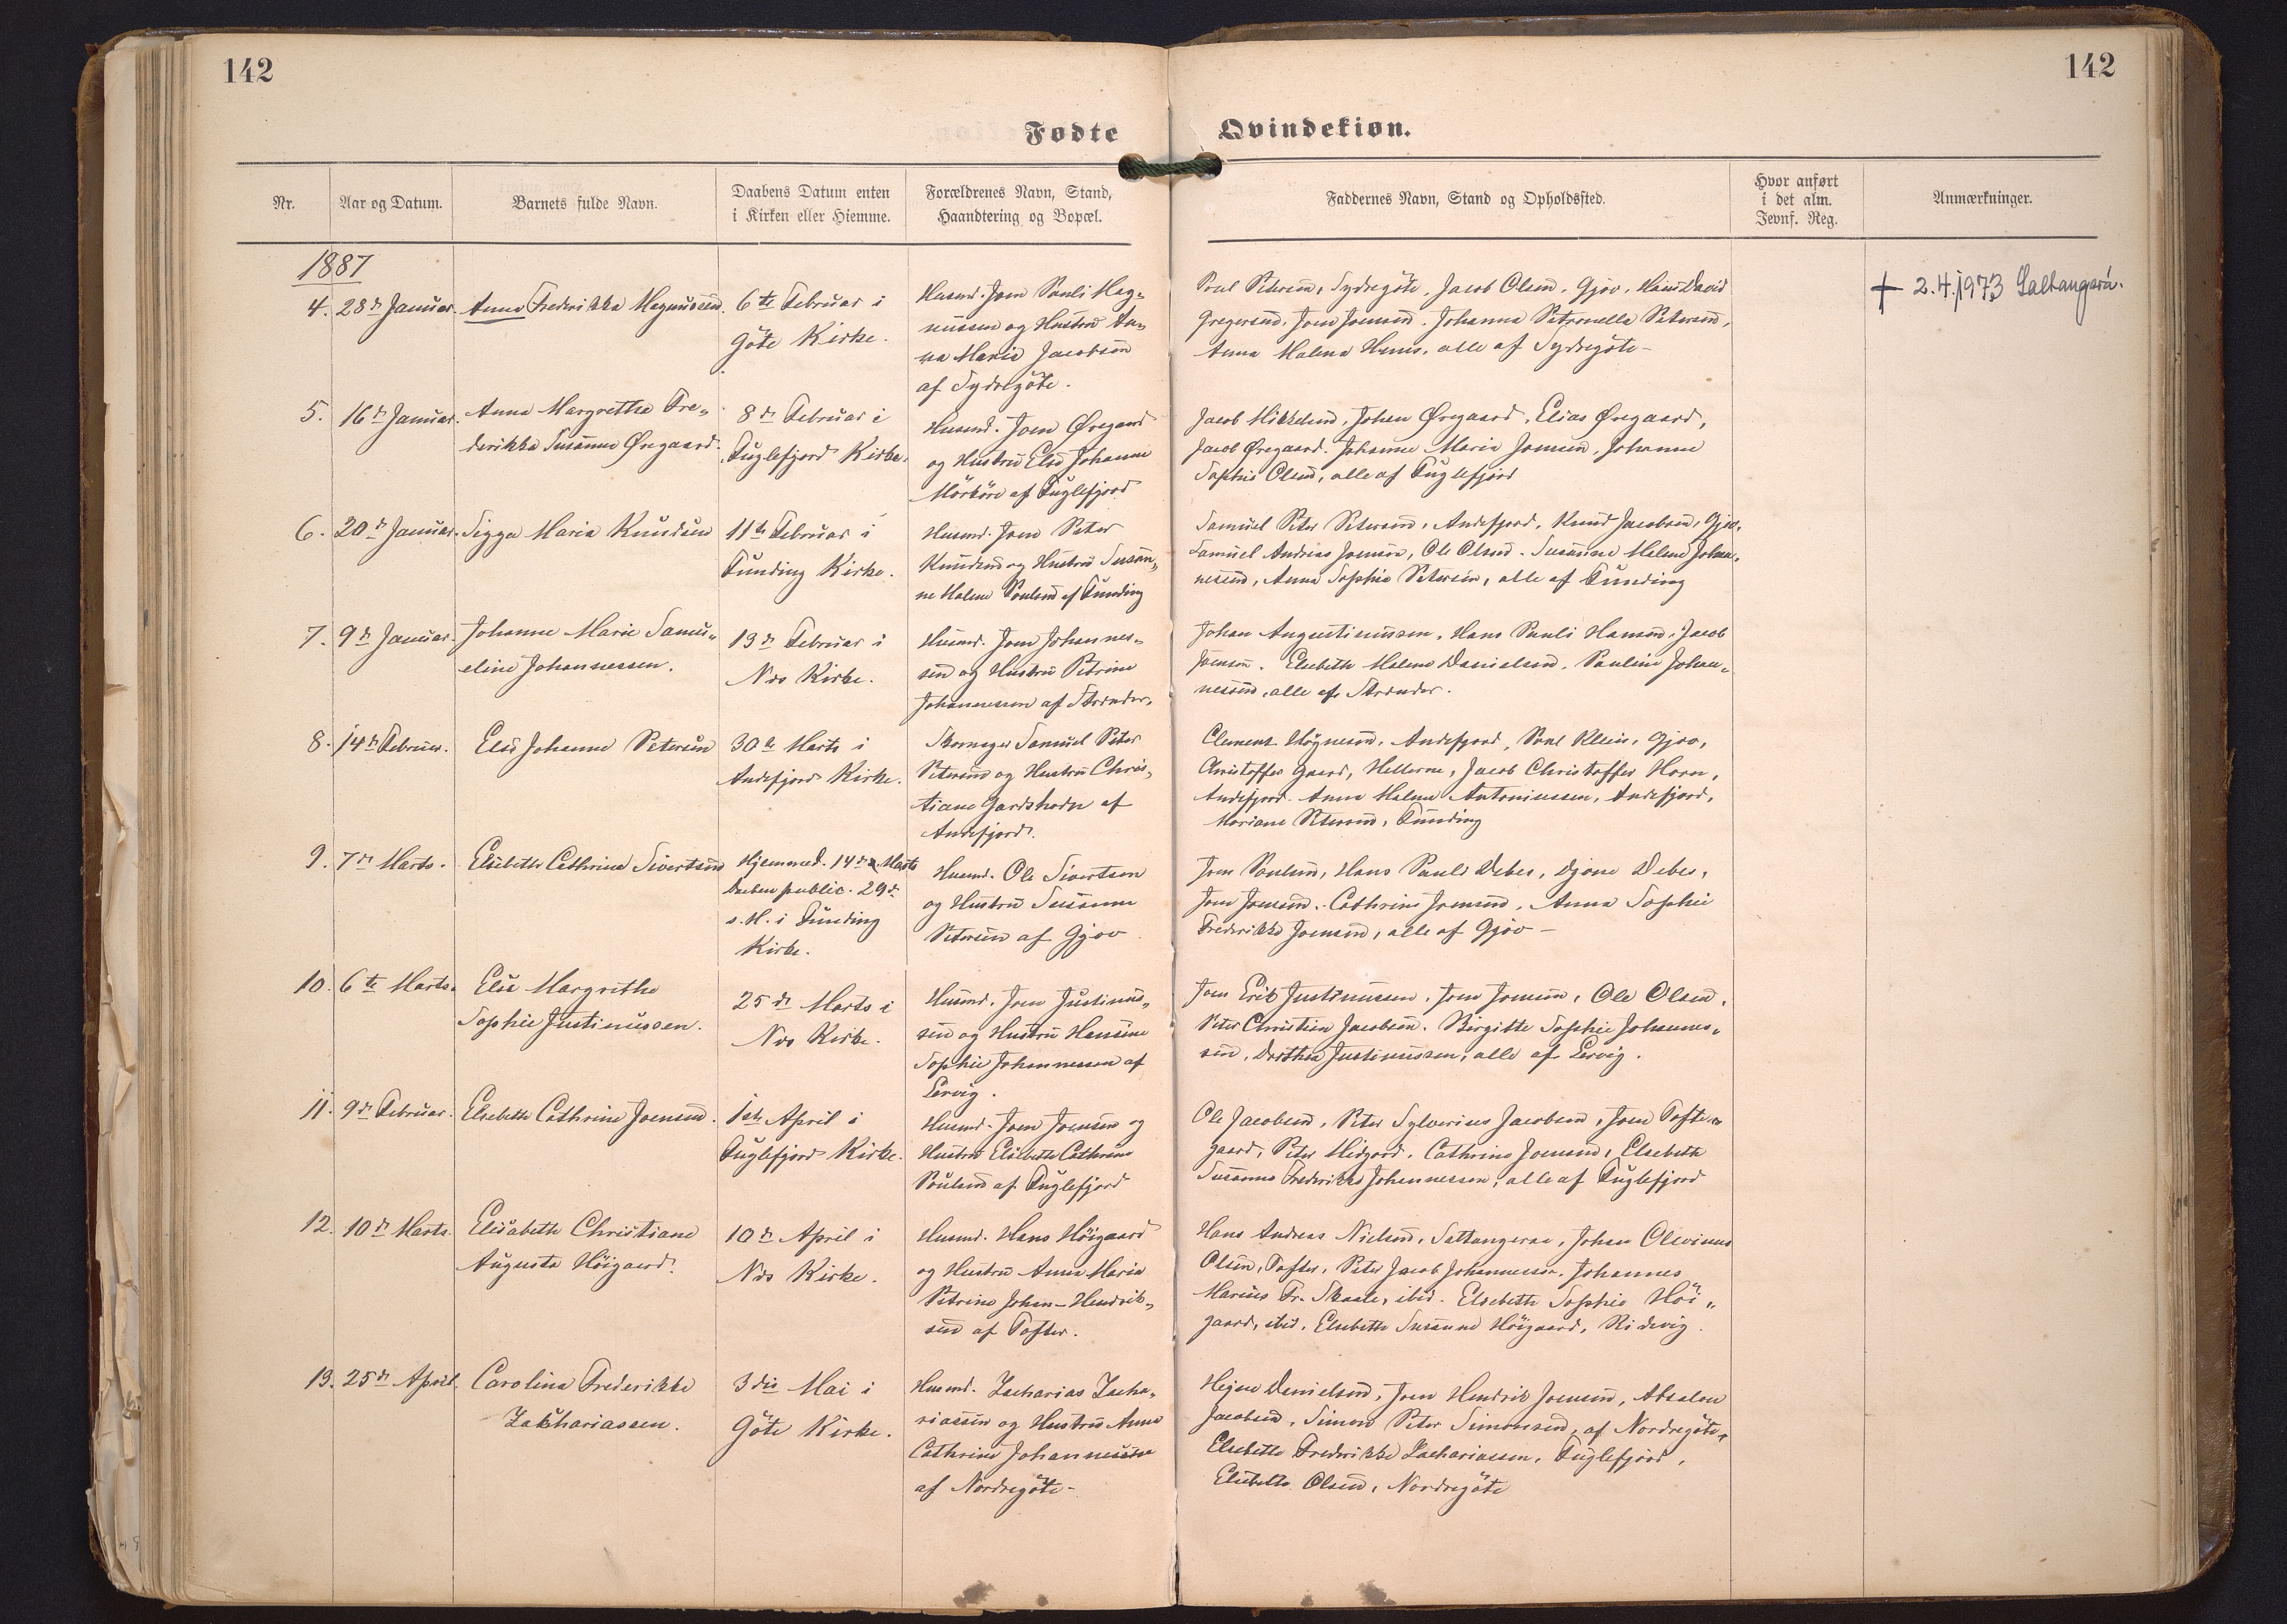 142
142
Fødte
Qvindekiøn.
Nr.
Aar og Datum.
Barnets fulde Navn.
Daabens Datum enten
i Kirken eller Hiemme.
Forældrenes Navn, Stand,
Haandtering og Bopæl.
Faddernes Navn, Stand og Opholdssted.
Hvor anført
i det alm.
Jevnf. Reg.
Anmærkninger.
1887
4. 28de Januar.
Anna Frederikka Magnussen.
6te Februar i
Göte Kirke.
Husmd. Joen Pauli Mag-
nussen og Hustru An-
na Maria Jacobsen
af Sydregöte.
Poul Petersen, Sydregöte, Jacob Olsen, Gjov, Hans David
Gregersen, Joen Joensen. Johanna Petronella Petersen,
Anna Malena Hans, alle af Sydregöte-
+ 2.4.1973 Saltangará.
5. 16de Januar.
Anna Margretha Fre-
derikka Susanna Øregaard.
8de Februar i
Fuglefjord Kirke.
Husmd. Joen Øregaard
og Hustru Else Johanne
Mörköre af Fuglefjord
Jacob Mikkelsen, Johan Øregaard, Elias Øregaard,
Jacob Øregaard. Johanne Maria Joensen, Johanne
Sophie Olsen, alle af Fuglefjord
6. 20de Januar.
Sigga Maria Knudsen
11te Februar i
Funding Kirke.
Husmd. Joen Peter
Knudsen og Hustru Susan-
ne Malene Poulsen af Funding
Samuel Peter Petersen, Andefjord, Knud Jacobsen, Gjov,
Samuel Andreas Joensen, Ole Olsen. Susanne Malene Johan-
nesen, Anna Sophie Petersen, alle af Funding
7. 9de Januar.
Johanne Marie Samu-
eline Johannessen.
13de Februar i
Næs Kirke.
Husmd. Joen Johannes-
sen og Hustru Petrine
Johannessen af Strænder.
Johan Augustinussen, Hans Pauli Hansen, Jacob
Joensen. Elsebeth Malene Danielsen, Pauline Johan-
nesen, alle af Strænder.
8. 14de Februar.
Else Johanne Petersen
30te Marts i
Andefjord Kirke.
Skomager Samuel Peter
Petersen og Hustru Chris-
tiane Gardshorn af
Andefjord.
Clement Högnesen, Andefjord, Poul Klein, Gjov,
Christoffer Gaard, Hellerne, Jacob Christoffer Horn,
Andefjord. Anna Malene Antoniussen, Andefjord,
Mariane Petersen, Funding
9. 7de Marts.
Elsebeth Cathrina Sivertsen
Hjemmed. 14de Marts
Daaben public. 29de
s. M. i Funding
Kirke.
Husmd. Ole Sivertsen
og Hustru Susanne
Petersen af Gjov
Joen Poulsen, Hans Pauli Debes, Djone Debes,
Joen Joensen. Cathrine Joensen, Anna Sophie
Frederikke Joensen, alle af Gjov -
10. 6te Marts.
Else Margrethe
Sophie Justinussen.
25de Marts i
Næs Kirke.
Husmd. Joen Justinus-
sen og Hustru Hansine
Sophie Johannessen af
Lervig.
Joen Erik Justinussen, Joen Joensen, Ole Olsen,
Peter Christian Jacobsen. Birgitte Sophie Johannes-
sen, Dorthea Justinussen, alle af Lervig.
11. 9de Februar.
Elsebeth Cathrine Joensen.
1ste April i
Fuglefjord Kirke.
Husmd. Joen Joensen og
Hustru Elsebeth Cathrine
Poulsen af Fuglefjord
Ole Jacobsen, Peter Sylverius Jacobsen, Joen Tofte-
gaard, Peter Midjord. Cathrine Joensen, Elsebeth
Susanna Frederikke Johannessen, alle af Fuglefjord
12. 10de Marts.
Elisabeth Christiane
Augusta Höigaard.
10de April i
Næs Kirke.
Husmd. Hans Höigaard
og Hustru Anna Maria
Petrine Johan-Hendrik-
sen af Tofter.
Hans Andreas Nielsen, Saltangeraa, Johan Olevinus
Olsen, Tofter, Peter Jacob Johannessen, Johannes
Marius Fr. Skaale, ibid. Elsebeth Sophie Höi-
gaard, ibid. Elsebeth Susanne Höigaard, Ridevig.
13. 25de April.
Carolina Frederikke
Zachariassen.
3die Mai i
Göte Kirke.
Husmd. Zacharias Zacha-
riassen og Hustru Anna
Cathrine Johannessen
af Nordregöte-
Hejne Danielsen, Joen Hendrik Joensen, Absalon
Jacobsen, Simon Peter Simonsen, af Nordregöte.
Elsebeth Frederikke Zachariassen, Fuglefjord,
Elsebeth Olsen, Nordregöte